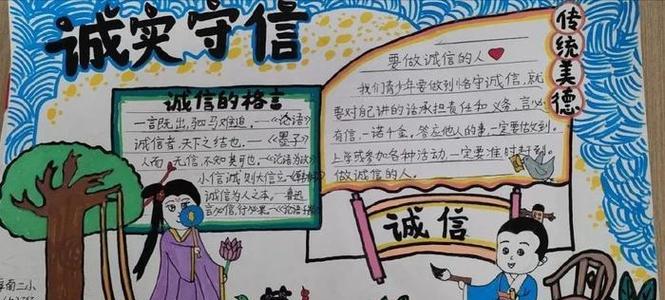 诚实守信
传统美德
诚信的格言
一言既出,驷马难追.——《论语》
诚信者,天下之结也.——《墨子》
人而无信,不知其可也.——《论语为政》
小信诚则大信立.——《韩非子》
诚信为人之本.——鲁迅
言必信,行必果.——《论语子路》
要做诚信的人
我们青少年要做到恪守诚信,就
要对自己讲的话承担责任和义务,言必
有信,一诺千金,答应他人的事,一定要做到.
上学或参加各种活动一定要准时赶到.
做诚信的人.
诚信
南二小